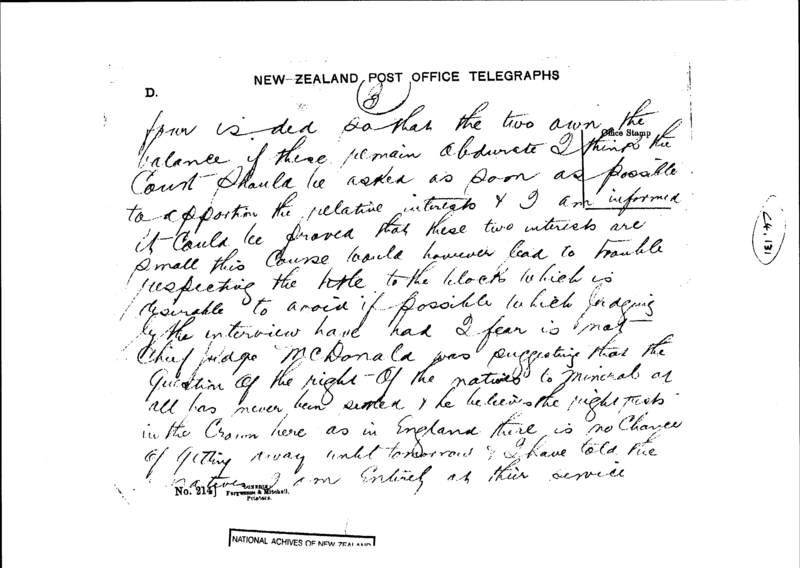 NEW ZEALAND POST OFFICE TELEGRAPHS
D.
3
Office Stamp
four is ded so that the two own the
balance if these remain obdurate I think the
Court should be asked as soon as possible
to apportion the relative interests & I am informed
it could be proved that these two interests are
small this Course would however lead to trouble
respecting the title to the blocks which is
desirable to avoid if possible which judging
by the interview have had I fear is not
Chief judge McDonald was suggesting that the
Question of the right of the natives to minerals at
all has never been settled & he believes the right rests
in the Crown here as in England there is no Chance
of getting away until tomorrow & I have told the
natives I am Entirely at their service
No. 214]
Fergusson & Mitchell,
Printers.
C4.131
NATIONAL ACHIVES OF NEW ZEALAND